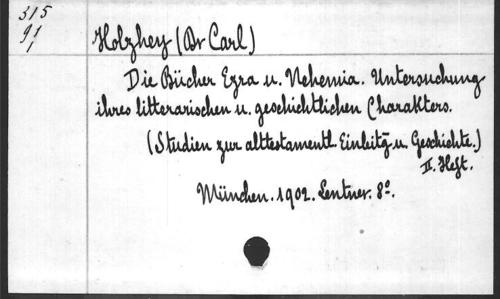 315
91
1
Holzhey (Dr Carl)
Die Bücher Ezra u. Nehemia. Untersuchung
ihres litterarischen u. geschichtlichen Charakters.
(Studien zur alttestamentl. Einleitg u. Geschichte.)
II. Heft.
München. 1902. Lentner. 8º.